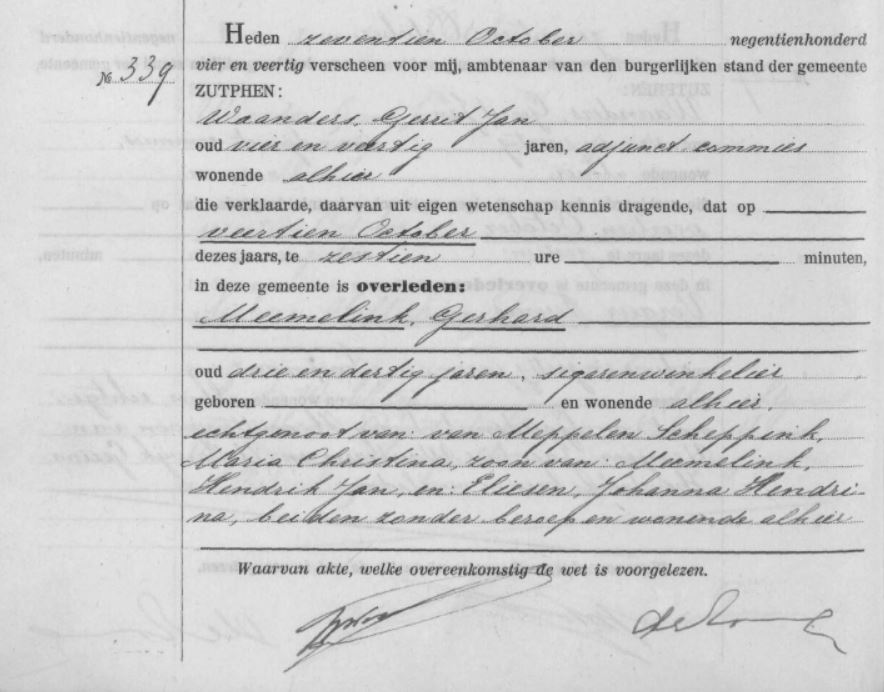 Heden zeventien October negentienhonderd
№ 339
vier en veertig verscheen voor mij, ambtenaar van den burgerlijken stand der gemeente
ZUTPHEN:
Waanders, Gerrit Jan
oud vier en veertig jaren, adjunct commies
wonende alhier
die verklaarde, daarvan uit eigen wetenschap kennis dragende, dat op
veertien October
dezes jaars, te zestien ure minuten,
in deze gemeente is overleden:
Meemelink, Gerhard
oud drie en dertig jaren, sigarenwinkelier
geboren en wonende alhier,
echtgenoot van: van Meppelen Scheppink,
Maria Christina, zoon van: Meemelink,
Hendrik Jan, en: Eliesen, Johanna Hendri-
na, beiden zonder beroep en wonende alhier
Waarvan akte, welke overeenkomstig de wet is voorgelezen.